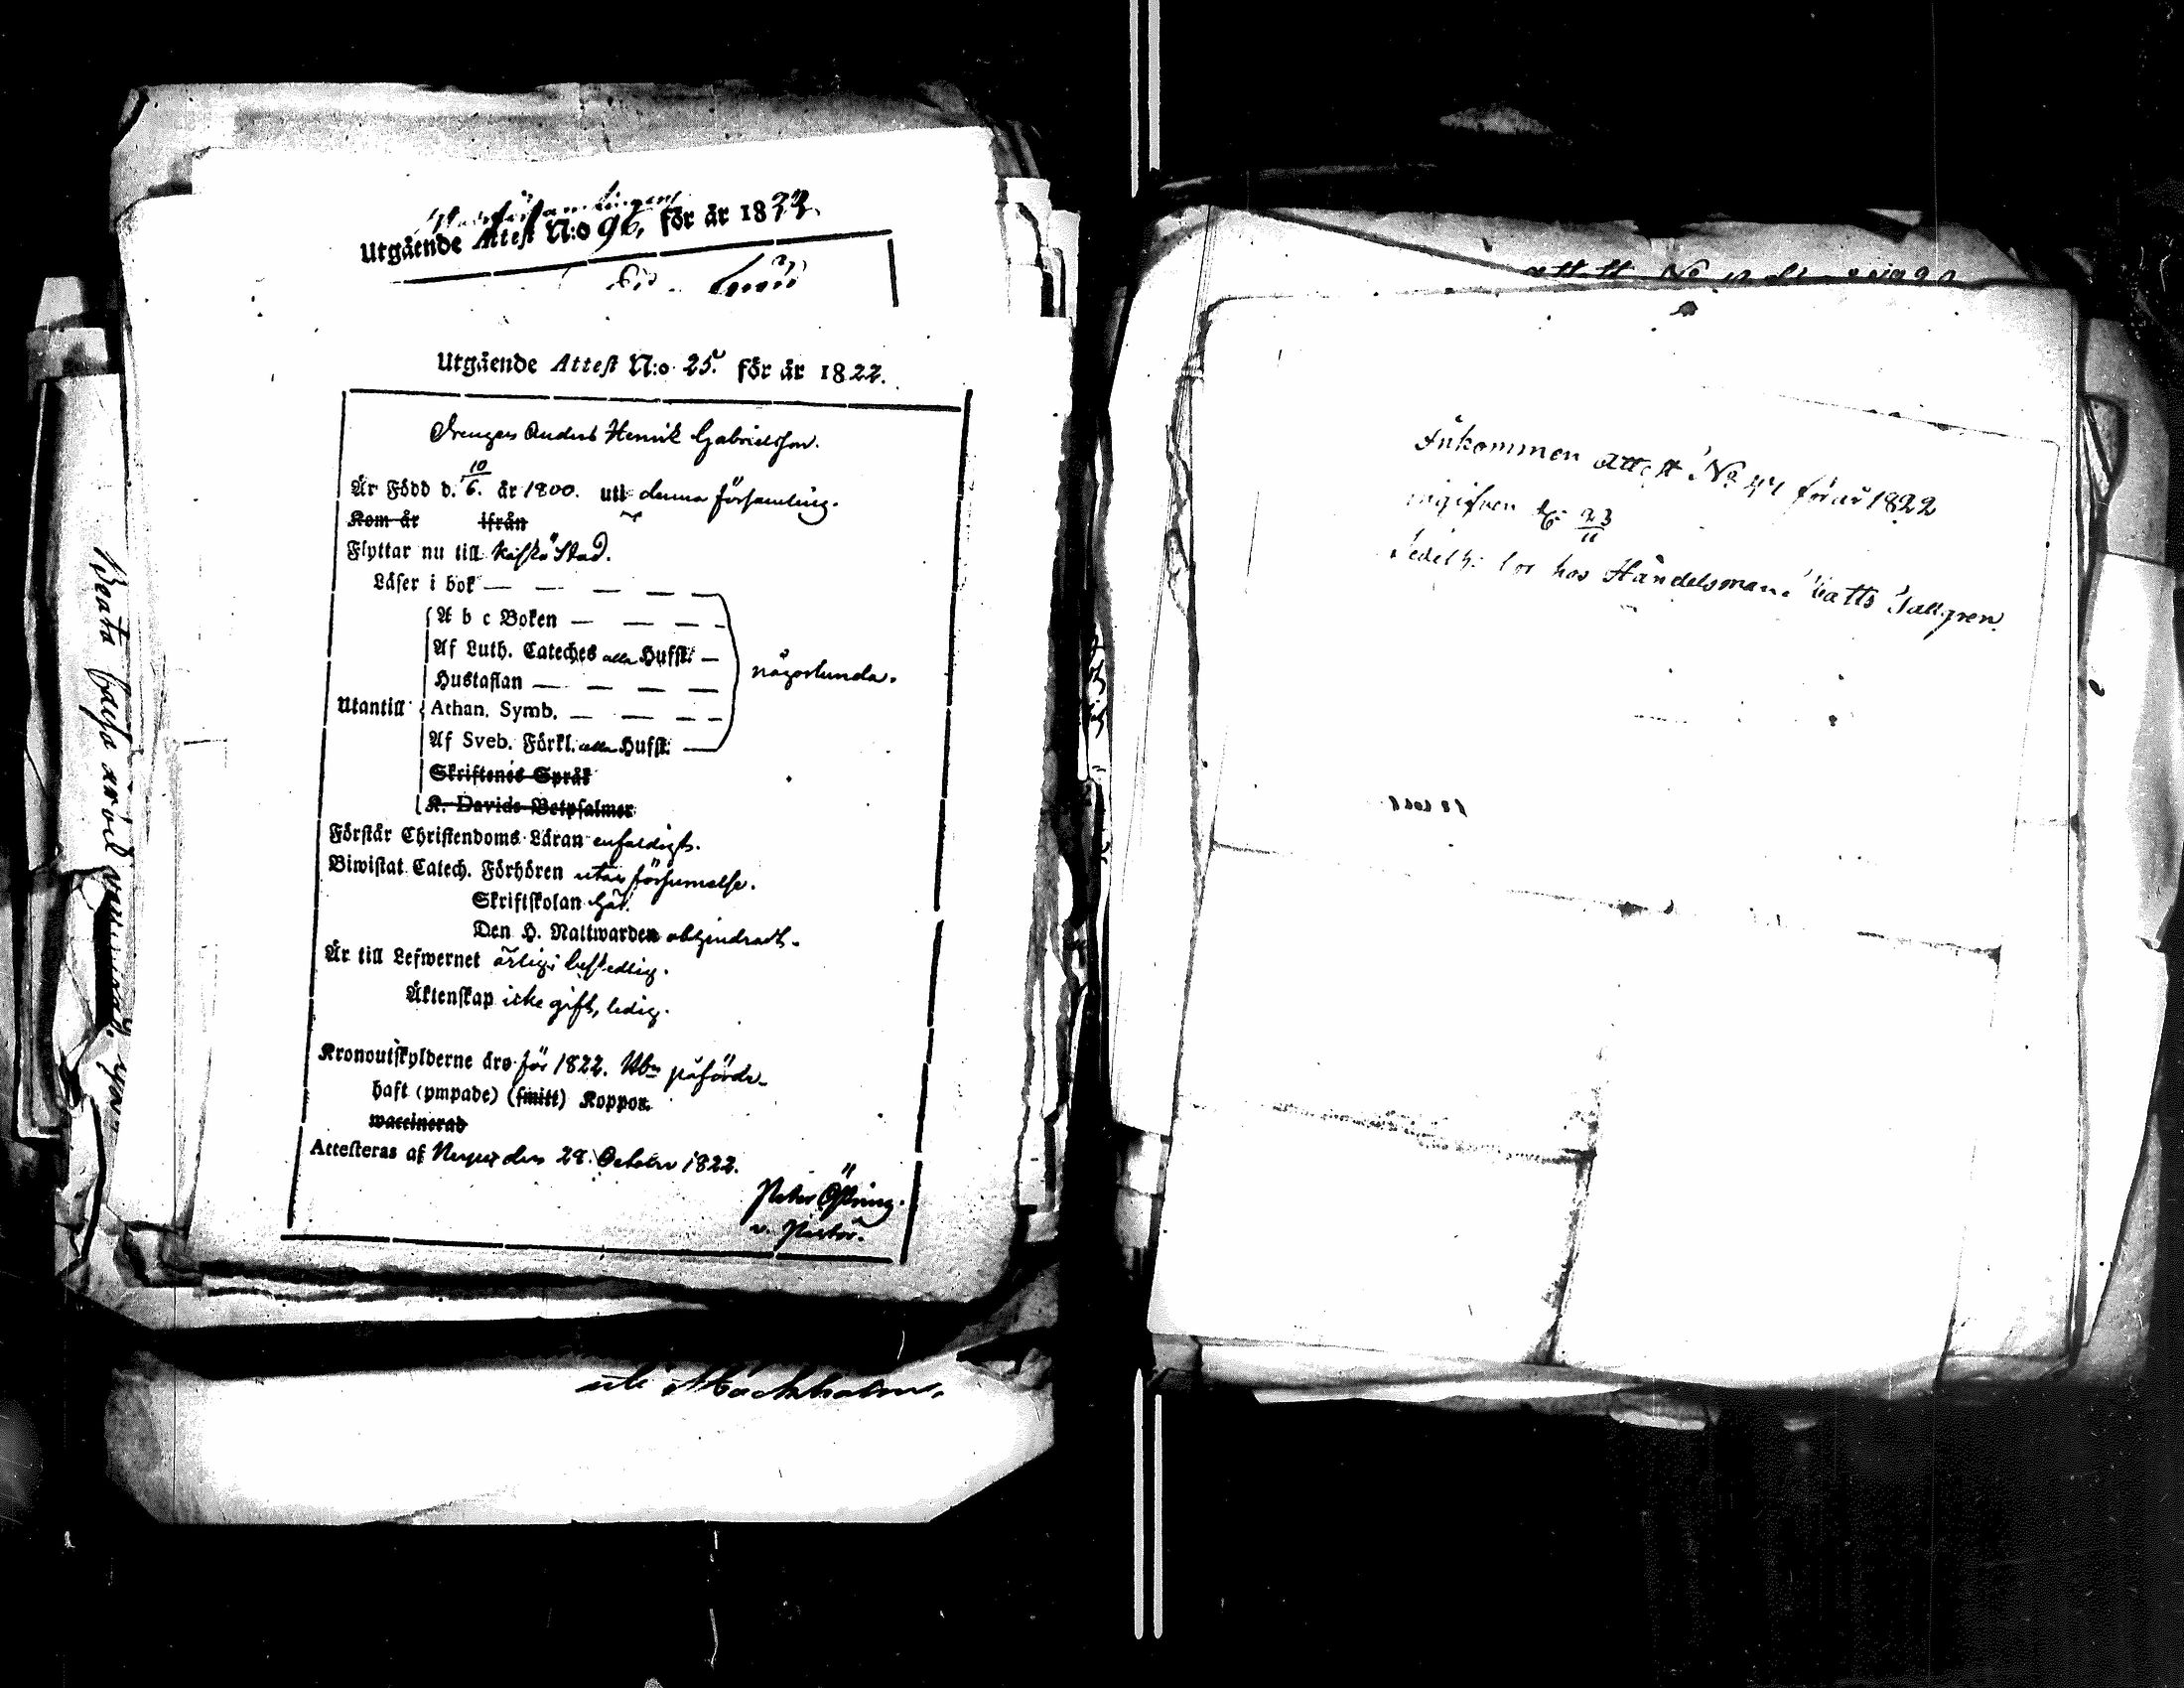 Utgående Attest N:o 96, för år 1833.
Utgående Attest N:o 25. för år 1822.
Drengen Anders Henrik Gabrielsson.
Är Född d. 10/6. år 1800. uti denna församling.
Kom år ifrån
Flyttar nu till Kaskö Stad.
Läser i bok
A b c Boken
Af Luth. Cateches alla Hufst.
Hustaflan
någorlunda.
Utantill Athan. Symb.
Af Sveb. Förkl. alla Hufst.
Skriftenes Språk
K. Davids Botpsalmer
Förstår Christendoms Läran enfaldigt.
Biwistat Catech. Förhören utan försummelse.
Skriftskolan
Den H. Nattwarden
Är till Lefwernet ärlig; beskedlig.
Äktenskap icke gift, ledig.
Kronoutskylderne äro för 1822. påförde
haft (ympade) (smitt) Koppor.
waccinerad
Attesteras af den 28. October 1822.
Peter
v. Pastor.
uti Stockholm.
Beata
Inkommen Attest No 44 för år 1822
ingifven d. 23/11
hos Handelsman Tallgren.